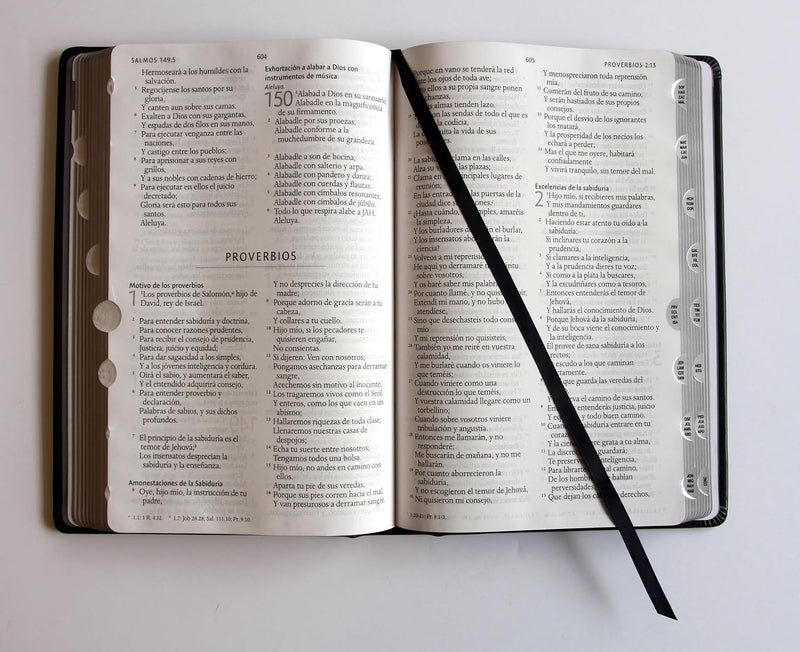 SALMOS 149:5
604
Hermoseará a los humildes con la
salvación.
5 Regocíjense los santos por su
gloria,
Y canten aun sobre sus camas.
6 Exalten a Dios con sus gargantas,
Y espadas de dos filos en sus manos,
7 Para ejecutar venganza entre las
naciones,
Y castigo entre los pueblos;
8 Para aprisionar a sus reyes con
grillos,
Y a sus nobles con cadenas de hierro;
9 Para ejecutar en ellos el juicio
decretado;
Gloria será esto para todos sus
santos.
Aleluya.
Exhortación a alabar a Dios con
instrumentos de música
Aleluya.
150 1Alabad a Dios en su santuario;
Alabadle en la magnificencia
de su firmamento.
2 Alabadle por sus proezas;
Alabadle conforme a la
muchedumbre de su grandeza.
3 Alabadle a son de bocina;
Alabadle con salterio y arpa.
4 Alabadle con pandero y danza;
Alabadle con cuerdas y flautas.
5 Alabadle con címbalos resonantes;
Alabadle con címbalos de júbilo.
6 Todo lo que respira alabe a JAH.
Aleluya.
PROVERBIOS
Motivo de los proverbios
1 1Los proverbios de Salomón,a hijo de
David, rey de Israel.
2 Para entender sabiduría y doctrina,
Para conocer razones prudentes,
3 Para recibir el consejo de prudencia,
Justicia, juicio y equidad;
4 Para dar sagacidad a los simples,
Y a los jóvenes inteligencia y cordura.
5 Oirá el sabio, y aumentará el saber,
Y el entendido adquirirá consejo,
6 Para entender proverbio y
declaración,
Palabras de sabios, y sus dichos
profundos.
7 El principio de la sabiduría es el
temor de Jehová;b
Los insensatos desprecian la
sabiduría y la enseñanza.
Amonestaciones de la Sabiduría
8 Oye, hijo mío, la instrucción de tu
padre,
a 1.1: 1 R. 4.32. b 1.7: Job 28.28; Sal. 111.10; Pr. 9.10.
Y no desprecies la dirección de tu
madre;
9 Porque adorno de gracia serán a tu
cabeza,
Y collares a tu cuello.
10 Hijo mío, si los pecadores te
quisieren engañar,
No consientas.
11 Si dijeren: Ven con nosotros;
Pongamos asechanzas para derramar
sangre,
Acechemos sin motivo al inocente;
12 Los tragaremos vivos como el Seol,
Y enteros, como los que caen en un
abismo;
13 Hallaremos riquezas de toda clase,
Llenaremos nuestras casas de
despojos;
14 Echa tu suerte entre nosotros;
Tengamos todos una bolsa.
15 Hijo mío, no andes en camino con
ellos.
Aparta tu pie de sus veredas,
16 Porque sus pies corren hacia el mal,
Y van presurosos a derramar sangre.
605
PROVERBIOS 2:13
Porque en vano se tenderá la red
los ojos de toda ave;
ellos a su propia sangre ponen
almas tienden lazo.
son las sendas de todo el que es
la codicia,
quita la vida de sus
20 La sabiduría clama en las calles,
Alza su las plazas;
21 Clama en principales lugares de
reunión;
En las entradas las puertas de la
ciudad dice razones.
22 ¿Hasta cuándo, simples, amaréis
la simpleza,
Y los burladores el burlar,
Y los insensatos la
ciencia?
23 Volveos a mi reprensión
He aquí yo derramaré espíritu
sobre vosotros,
Y os haré saber mis palabras.
24 Por cuanto llamé, y no quisisteis
Extendí mi mano, y no hubo
atendiese,
25 Sino que desechasteis todo consejo
mío
Y mi reprensión no quisisteis,
26 También yo me reiré en vuestra
calamidad,
Y me burlaré cuando os viniere lo
que teméis;
27 Cuando viniere como una
destrucción lo que teméis,
Y vuestra calamidad llegare como un
torbellino;
Cuando sobre vosotros viniere
tribulación y angustia.
28 Entonces me llamarán, y no
responderé;
Me buscarán de mañana, y no me
hallarán.
29 Por cuanto aborrecieron la
sabiduría,
Y no escogieron el temor de Jehová,
30 Ni quisieron mi consejo,
1.20-21: Pr. 8.1-3.
Y menospreciaron toda reprensión
mía,
31 Comerán del fruto de su camino,
Y serán hastiados de sus propios
consejos.
32 Porque el desvío de los ignorantes
los matará,
Y la prosperidad de los necios los
echará a perder;
33 Mas el que me oyere, habitará
confiadamente
Y vivirá tranquilo, sin temor del mal.
Excelencias de la sabiduría
2 1Hijo mío, si recibieres mis palabras,
Y mis mandamientos guardares
dentro de ti,
2 Haciendo estar atento tu oído a la
sabiduría;
Si inclinares tu corazón a la
prudencia,
3 Si clamares a la inteligencia,
Y a la prudencia dieres tu voz;
4 Si como a la plata la buscares,
Y la escudriñares como a tesoros,
5 Entonces entenderás el temor de
Jehová,
Y hallarás el conocimiento de Dios.
6 Porque Jehová da la sabiduría,
Y de su boca viene el conocimiento y
la inteligencia.
7 Él provee de sana sabiduría a los
rectos;
Es escudo a los que caminan
rectamente.
8 Es el que guarda las veredas del
juicio,
Y preserva el camino de sus santos.
9 Entonces entenderás justicia, juicio
Y equidad, y todo buen camino.
10 Cuando la sabiduría entrare en tu
corazón,
Y la ciencia fuere grata a tu alma,
11 La discreción te guardará;
Te preservará la inteligencia,
12 Para librarte del mal camino,
De los hombres que hablan
perversidades,
13 Que dejan los caminos derechos,